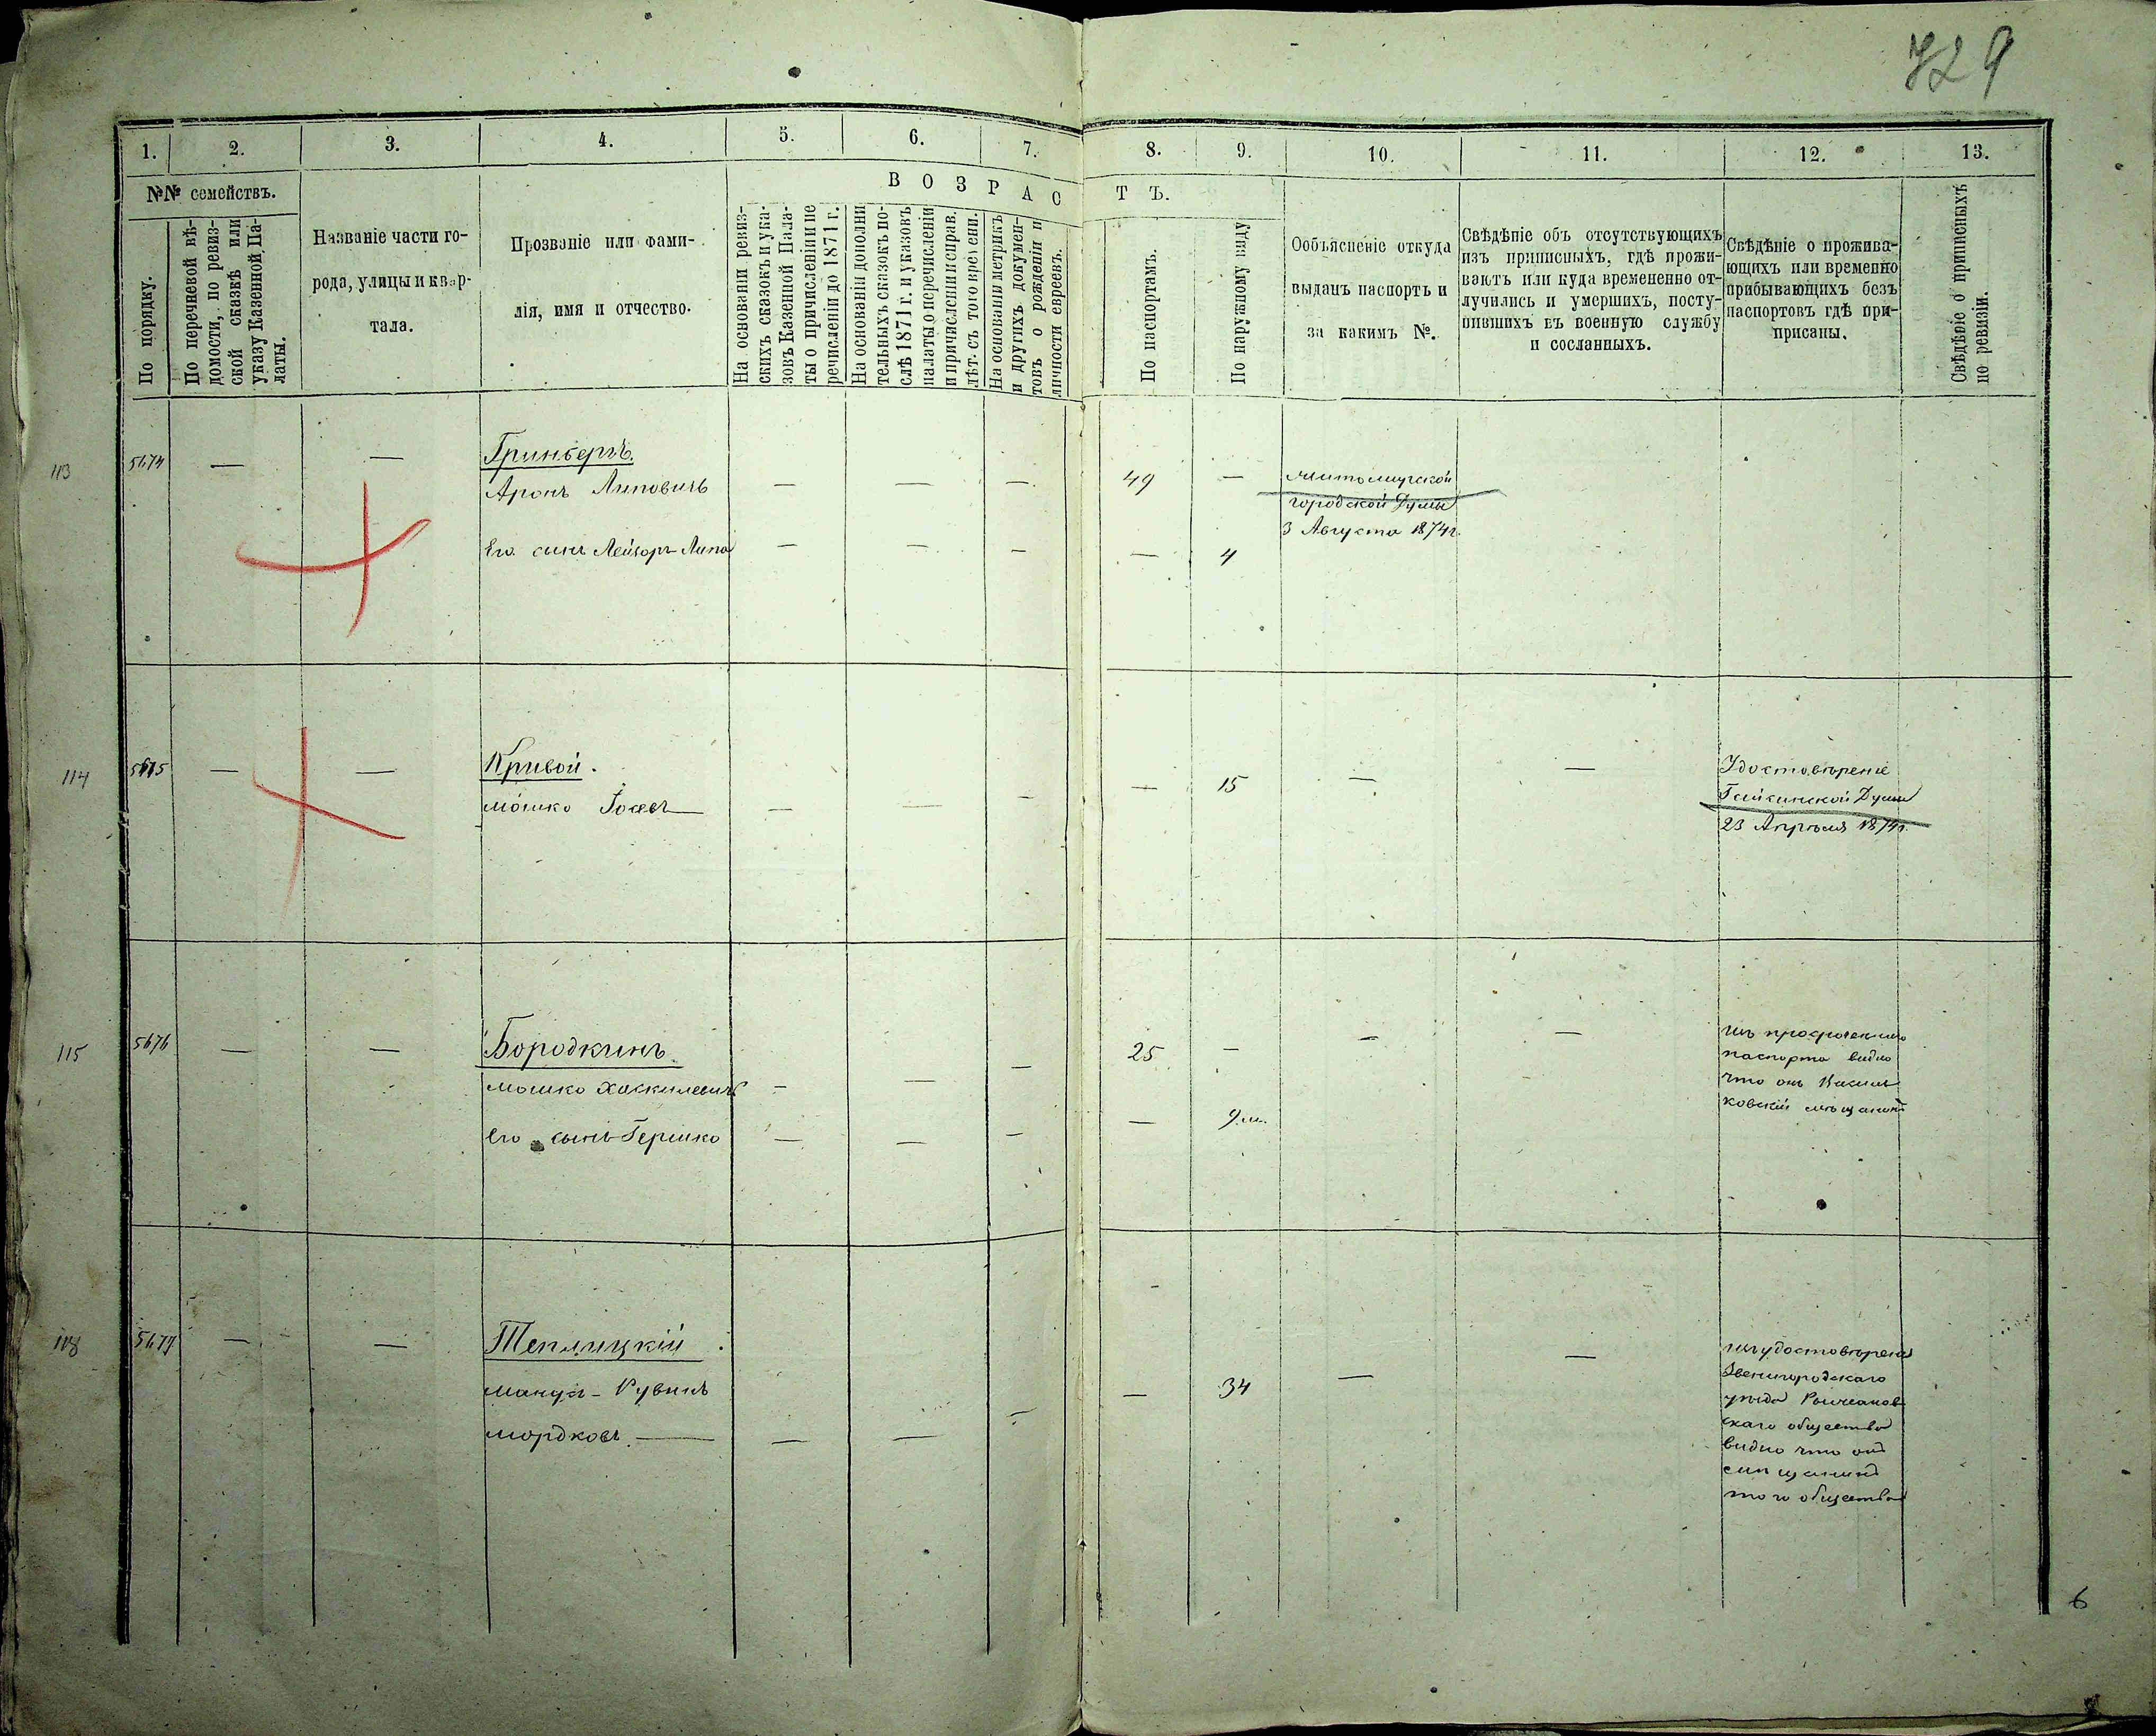 729
1. 2. 3. 4. 5. 6. 7. 8. 9. 10. 11. 12. 13.
№№ семействъ.
ВОЗРАСТЪ.
По порядку.
По перечневой вѣ-
домости, по ревиз-
ской сказкѣ или
указу Казенной Па-
латы.
Названіе части го-
рода, улицы и квар-
тала.
Прозваніе или фами-
лія, имя и отчество.
На основаніи ревиз-
скихъ сказокъ и ука-
зовъ Казенной Пала-
ты о причисленіи и пе
речисленіи до 1871 г.
На основаніи дополни
тельныхъ сказокъ по-
слѣ 1871 г. и указовъ
палаты о перечисленіи
и причисленіи и справ.
лѣт. съ того времени.
На основаніи метрикъ
и другихъ докумен-
товъ о рожденіи и
личности евреевъ.
По паспортамъ.
По наружному виду
Ообъясненіе откуда
выданъ паспортъ и
за какимъ №.
Свѣдѣніе объ отсутствующихъ
изъ приписныхъ, гдѣ прожи-
ваютъ или куда временно от-
лучились и умершихъ, посту-
пившихъ въ военную службу
и сосланныхъ.
Свѣдѣніе о прожива-
ющихъ или временно
прибывающихъ безъ
паспортовъ гдѣ при-
присаны.
Свѣдѣніе о приписныхъ
по ревизіи.
113 5674 — — Гринбергъ.
Аронъ Липовичъ — — — 49 — Житомирской
городской Думы
3 Августа 1874г.
Его сынъ Лейзоръ Липа — — — — 4
114 5675 — — Кривой.
Мошко Іосевъ — — — — 15 — — Удостовѣреніе
Гайсинской Думы
23 Апрѣля 1874г.
115 5676 — — Бородкинъ.
Мошко Хаскилевичъ — — — 25 — — — изъ просроченнаго
паспорта видно
что онъ Василь
ковскій мѣщанинъ
Его сынъ Гершко — — — — 9 м.
5677 — — Теплицкій.
Манусъ-Рувинъ — 34 — — изъ удостовѣренія
Звенигородскаго
уѣзда
скаго общества
видно что онъ
мѣщанинъ
того общества
Мордковъ — — — —
6